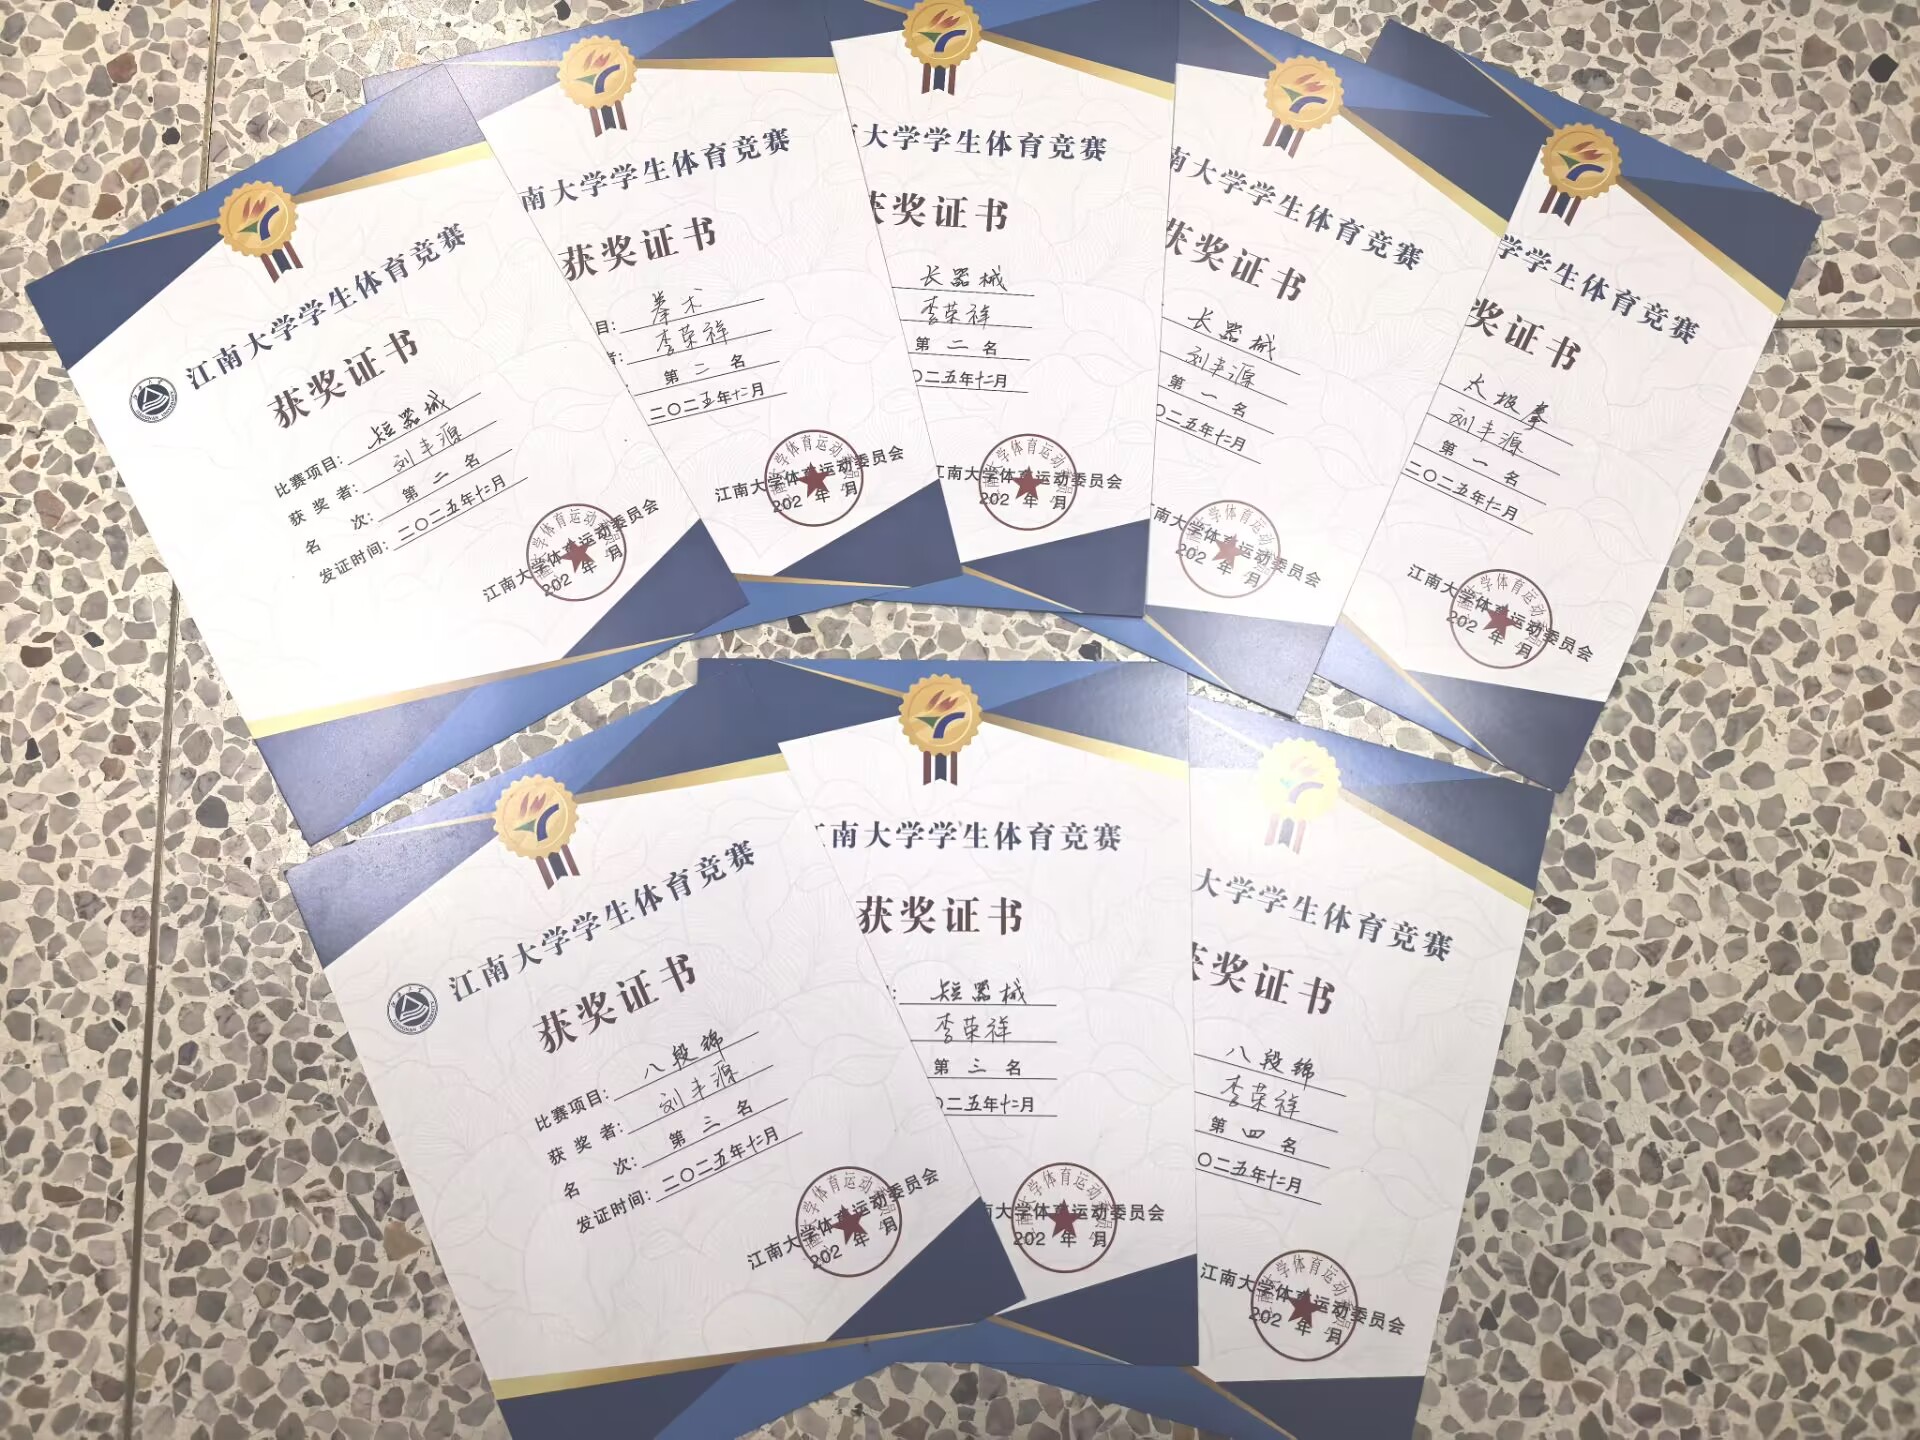 江南大学学生体育竞赛
获奖证书
比赛项目: 短器械
获奖者: 刘丰源
名次: 第二名
发证时间: 二〇二五年十二月
江南大学体育运动委员会
202 年 月
南大学学生体育竞赛
获奖证书
目: 拳术
者: 李荣祥
第二名
二〇二五年十二月
江南大学体育运动委员会
202 年 月
大学学生体育竞赛
获奖证书
长器械
李荣祥
第二名
〇二五年十二月
江南大学体育运动委员会
202 年 月
南大学学生体育竞赛
获奖证书
长器械
刘丰源
第一名
〇二五年十二月
南大学体育运动委员会
202 年 月
学学生体育竞赛
奖证书
太极拳
刘丰源
第一名
二〇二五年十二月
江南大学体育运动委员会
202 年 月
江南大学学生体育竞赛
获奖证书
比赛项目: 八段锦
获奖者: 刘丰源
名次: 第三名
发证时间: 二〇二五年十二月
江南大学体育运动委员会
202 年 月
江南大学学生体育竞赛
获奖证书
: 短器械
李荣祥
第三名
〇二五年十二月
南大学体育运动委员会
202 年 月
大学学生体育竞赛
获奖证书
八段锦
李荣祥
第四名
〇二五年十二月
江南大学体育运动委员会
202 年 月